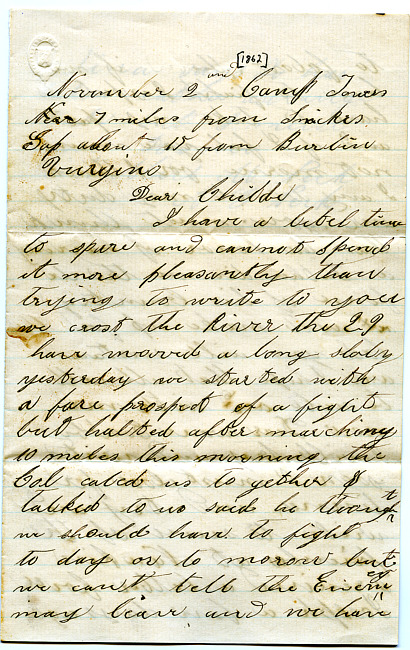 [1862]
November 2nd Camp Towers
Near 7 miles from Snickes
Gap about 15 from Burlin
Vurgina
Dear Childe
I have a litel time
to spare and cannot spend
it more pleasantly than
trying to write to you
we crost the River the 29
have moved a long sloly
yesterday we started with
a fare prospect of a fight
but halted after marching
10 miles this morning the
Col caled us to gether &
talked to us said he thought
we should have to fight
to day or to morow but
we cant tell the Enemy
may leave and we have